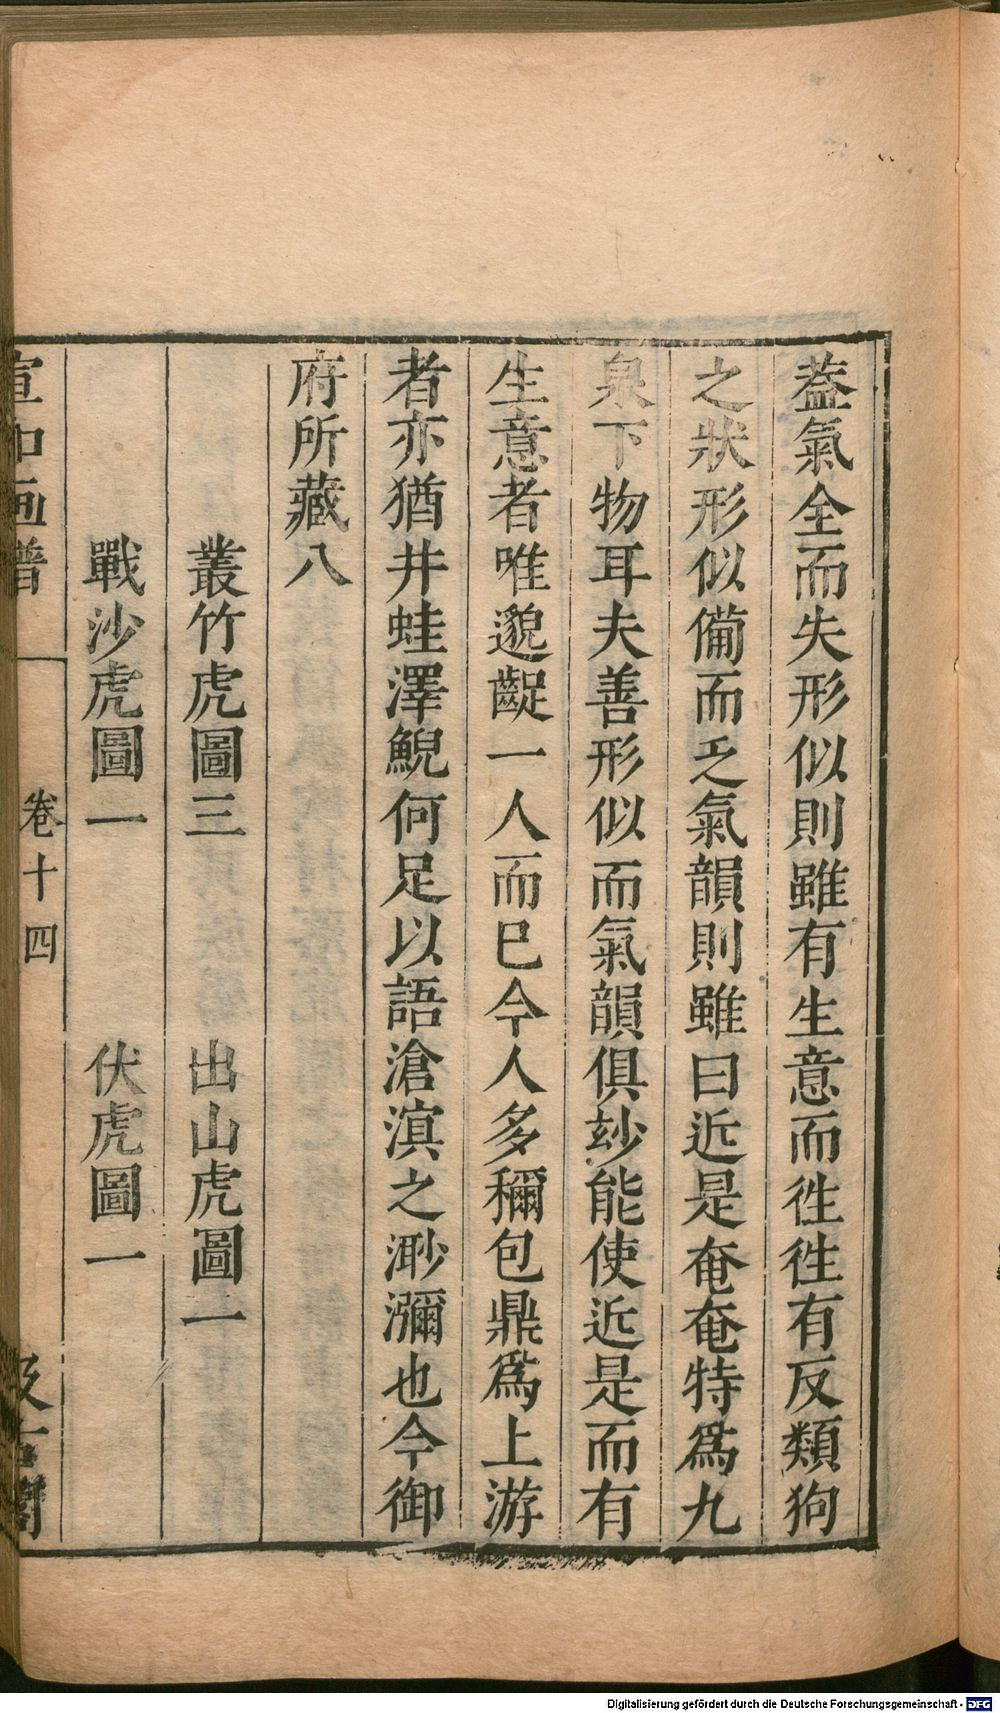 葢氣全而失形似則雖有生意而徃徃有反類狗
之狀形似備而乏氣韻則雖曰近是奄奄特爲九
泉下物耳夫善形似而氣韻俱玅能使近是而有
生意者唯邈齪一人而巳今人多稱包鼎爲上游
者亦猶井蛙澤鯢何足以語滄溟之渺瀰也今御
府所藏八
叢竹虎圖三　出山虎圖一
戰沙虎圖一　伏虎圖一
宣和画譜　卷十四　汲古閣
Digitalisierung gefördert durch die Deutsche Forschungsgemeinschaft - DFG